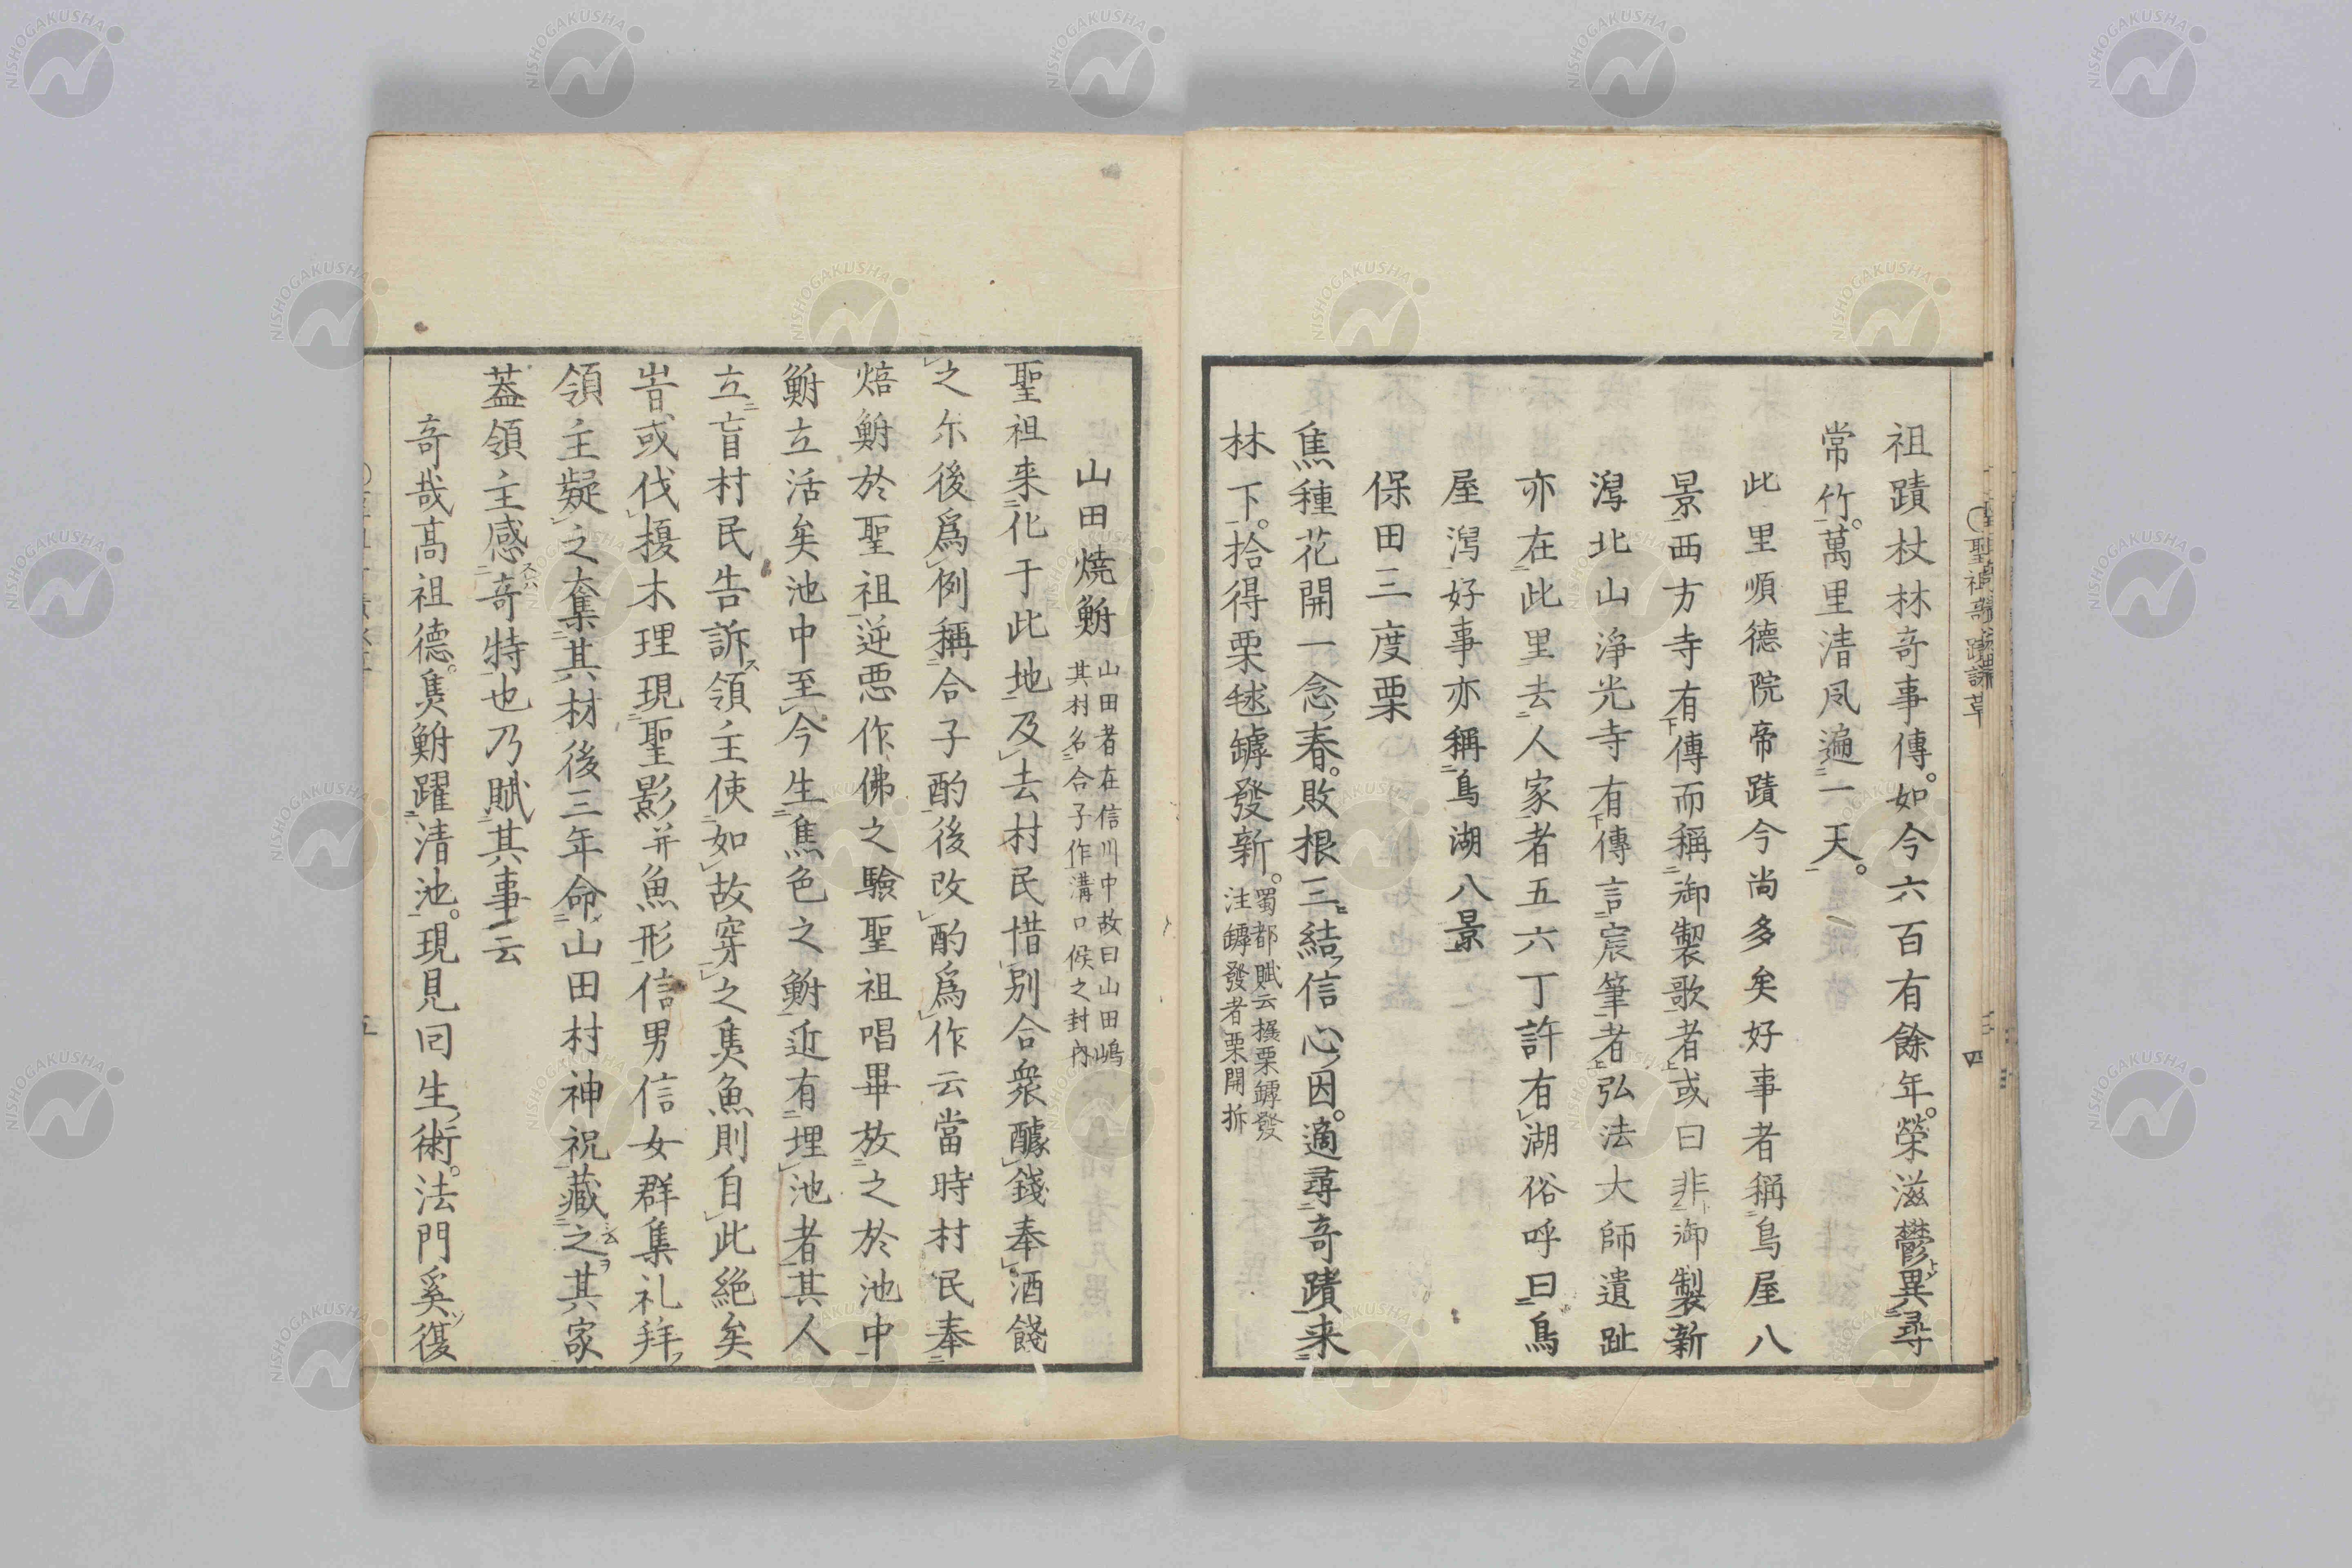 祖蹟杖林奇事傳。如今六百有餘年。榮滋鬱異尋
常竹。萬里清风遍一天。
此里順德院帝蹟今尚多矣好事者稱鳥屋八
景西方寺有傳而稱御製歌者或曰非御製新
潟北山淨光寺有傳言宸筆者弘法大師遺趾
亦在此里去人家者五六丁許有湖俗呼曰鳥
屋潟好事亦稱鳥湖八景
保田三度栗
焦種花開一念春。敗根三結信心因。適尋奇蹟来
林下。拾得栗毬罅發新。蜀都賦云榛栗罅發
注罅發者栗開拆
山田燒鮒 山田者在信川中故曰山田嶋
其村名合子作溝口候之封內
聖祖来化于此地及去村民惜別合衆醵錢奉酒餞
之尓後爲例稱合子酌後改酌爲作云當時村民奉
焙鮒於聖祖逆悪作佛之驗聖祖唱畢放之於池中
鮒立活矣池中至今生焦色之鮒近有埋池者其人
立盲村民告訴領主使如故穿之隽魚則自此絕矣
旹或伐榎木理現聖影并魚形信男信女群集礼拜
領主疑之奪其材後三年命山田村神祝藏之其家
葢領主感奇特也乃賦其事云
奇哉高祖德。隽鮒躍清池。現見回生術。法門奚復
聖祖奇蹟謙草
四
NISHOGAKUSHA